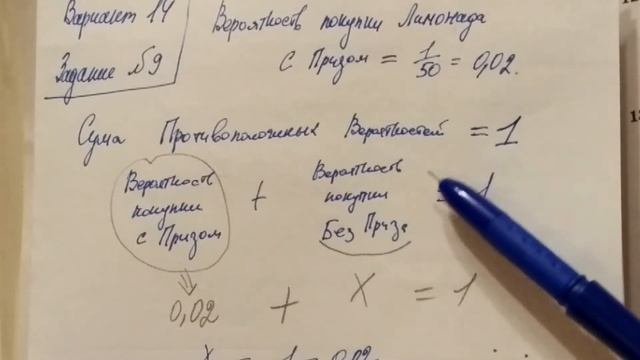 Вариант 14
Задание №9
Вероятность покупки Лимонада
с Призом = 1/50 = 0,02.
Сума Противоположных Вероятностей = 1
Вероятность покупки с Призом + Вероятность покупки Без Приза = 1
0,02 + X = 1
X = 1 - 0,02